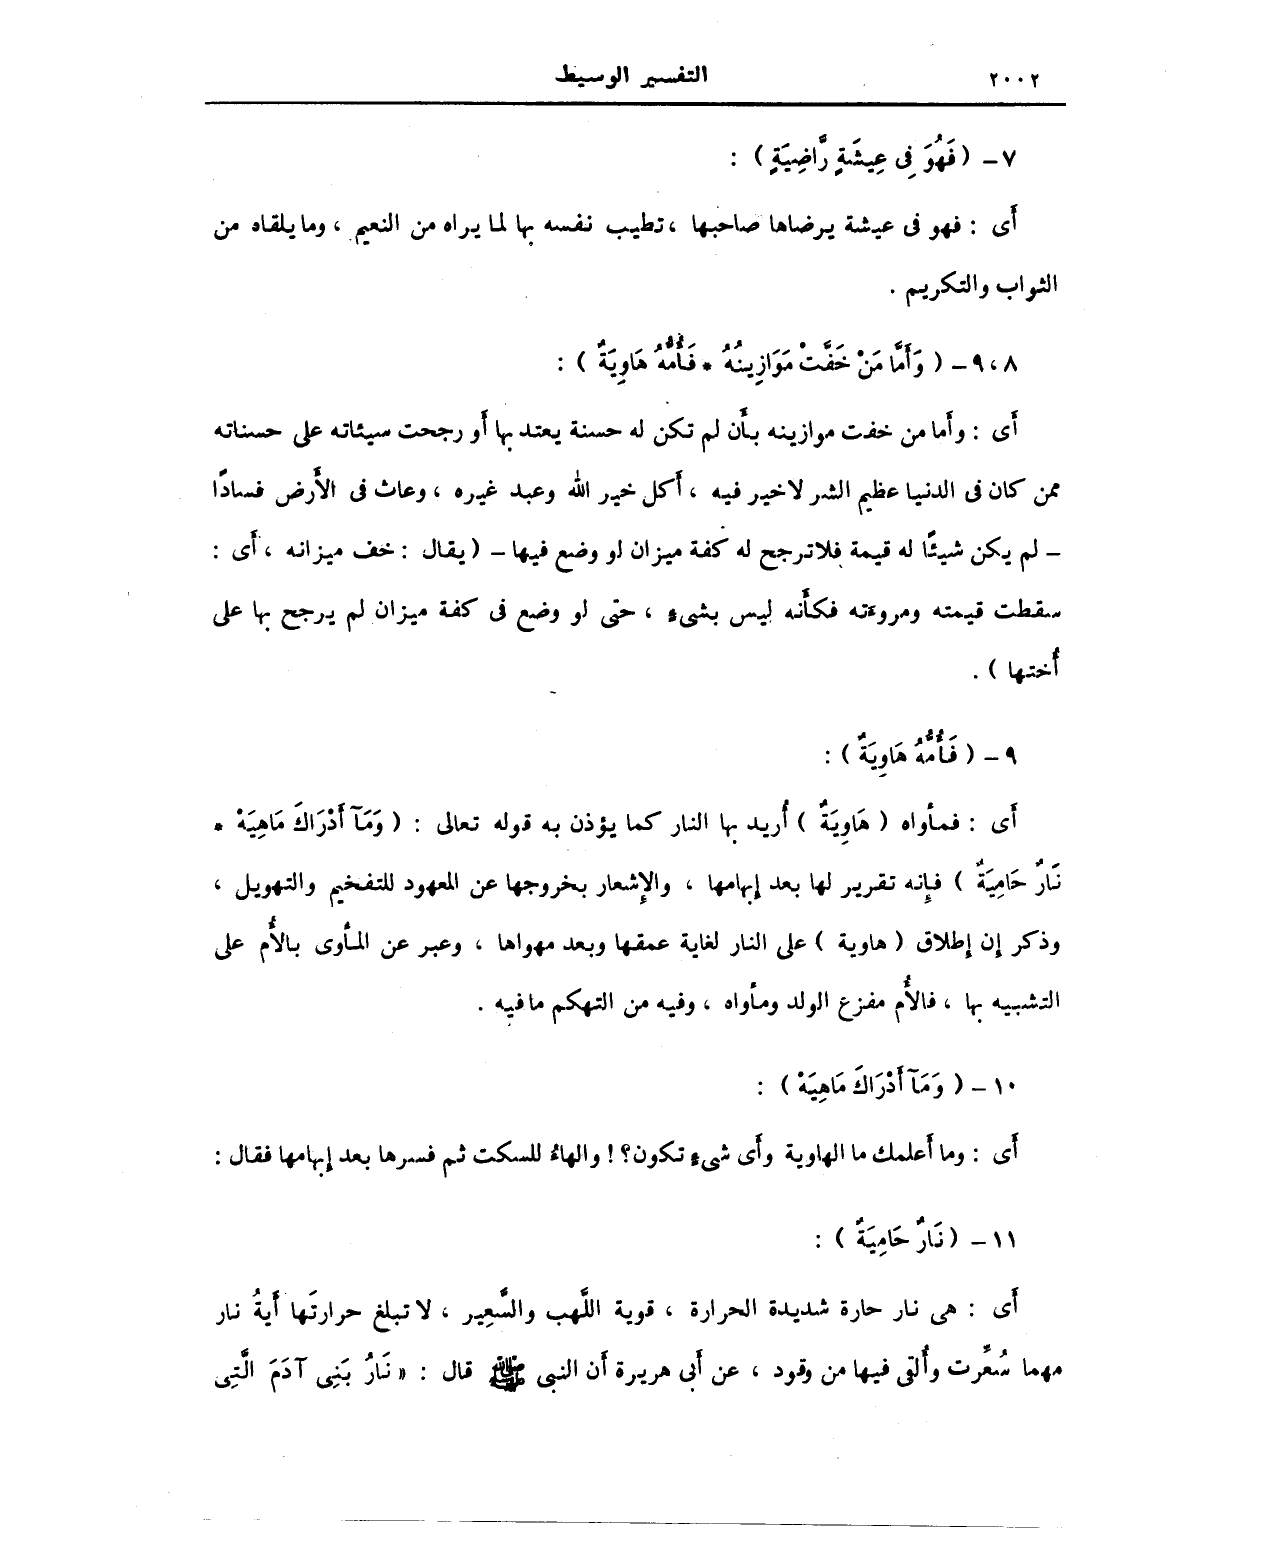 ٢٠٠٢ التفسير الوسيط
٧ – ( فَهُوَ فِى عِيشَةٍ رَّاضِيَةٍ ) :
أَى : فهو فى عيشة يرضاها صاحبها ، تطيب نفسه بها لما يراه من النعيم ، وما يلقاه من
الثواب والتكريم .
٨ ، ٩ – ( وَأَمَّا مَنْ خَفَّتْ مَوَازِينُهُ * فَأُمُّهُ هَاوِيَةٌ ) :
أَى : وأَما من خفت موازينه بأَن لم تكن له حسنة يعتد بها أَو رجحت سيئاته على حسناته
ممن كان فى الدنيا عظيم الشر لا خير فيه ، أَكل خير الله وعبد غيره ، وعاث فى الأَرض فسادًا
– لم يكن شيئًا له قيمة فلا ترجح له كفة ميزان لو وضع فيها – ( يقال : خف ميزانه ، أَى :
سقطت قيمته ومروءته فكأَنه ليس بشىءٍ ، حتى لو وضع فى كفة ميزان لم يرجح بها على
أُختها ) .
٩ – ( فَأُمُّهُ هَاوِيَةٌ ) :
أَى : فمأواه ( هَاوِيَةٌ ) أُريد بها النار كما يؤذن به قوله تعالى : ( وَمَآ أَدْرَاكَ مَاهِيَهْ *
نَارٌ حَامِيَةٌ ) فإِنه تقرير لها بعد إِبهامها ، والإِشعار بخروجها عن المعهود للتفخيم والتهويل ،
وذكر إِن إِطلاق ( هاوية ) على النار لغاية عمقها وبعد مهواها ، وعبر عن المأوى بالأُم على
التشبيه بها ، فالأُم مفزع الولد ومأواه ، وفيه من التهكم مافيه .
١٠ – ( وَمَآ أَدْرَاكَ مَاهِيَهْ ) :
أَى : وما أَعلمك ما الهاوية وأَى شىءٍ تكون؟ ! والهاءُ للسكت ثم فسرها بعد إِبهامها فقال :
١١ – ( نَارٌ حَامِيَةٌ ) :
أَى : هى نار حارة شديدة الحرارة ، قوية اللَّهب والسَّعِير ، لا تبلغ حرارتَها أَيةُ نار
مهما سُعِّرت وأُلقى فيها من وقود ، عن أَبى هريرة أَن النبى ﷺ قال : « نَارُ بَنِى آدَمَ الَّتِى